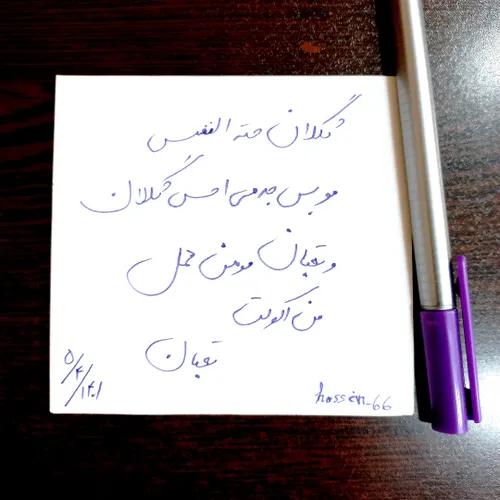 گملان حته النفس
مو بس جدمي احس گملان
وتعبان مومن حمل
من اكولت
تعبان
۵/۴/۱۴۰۱
hossein-66